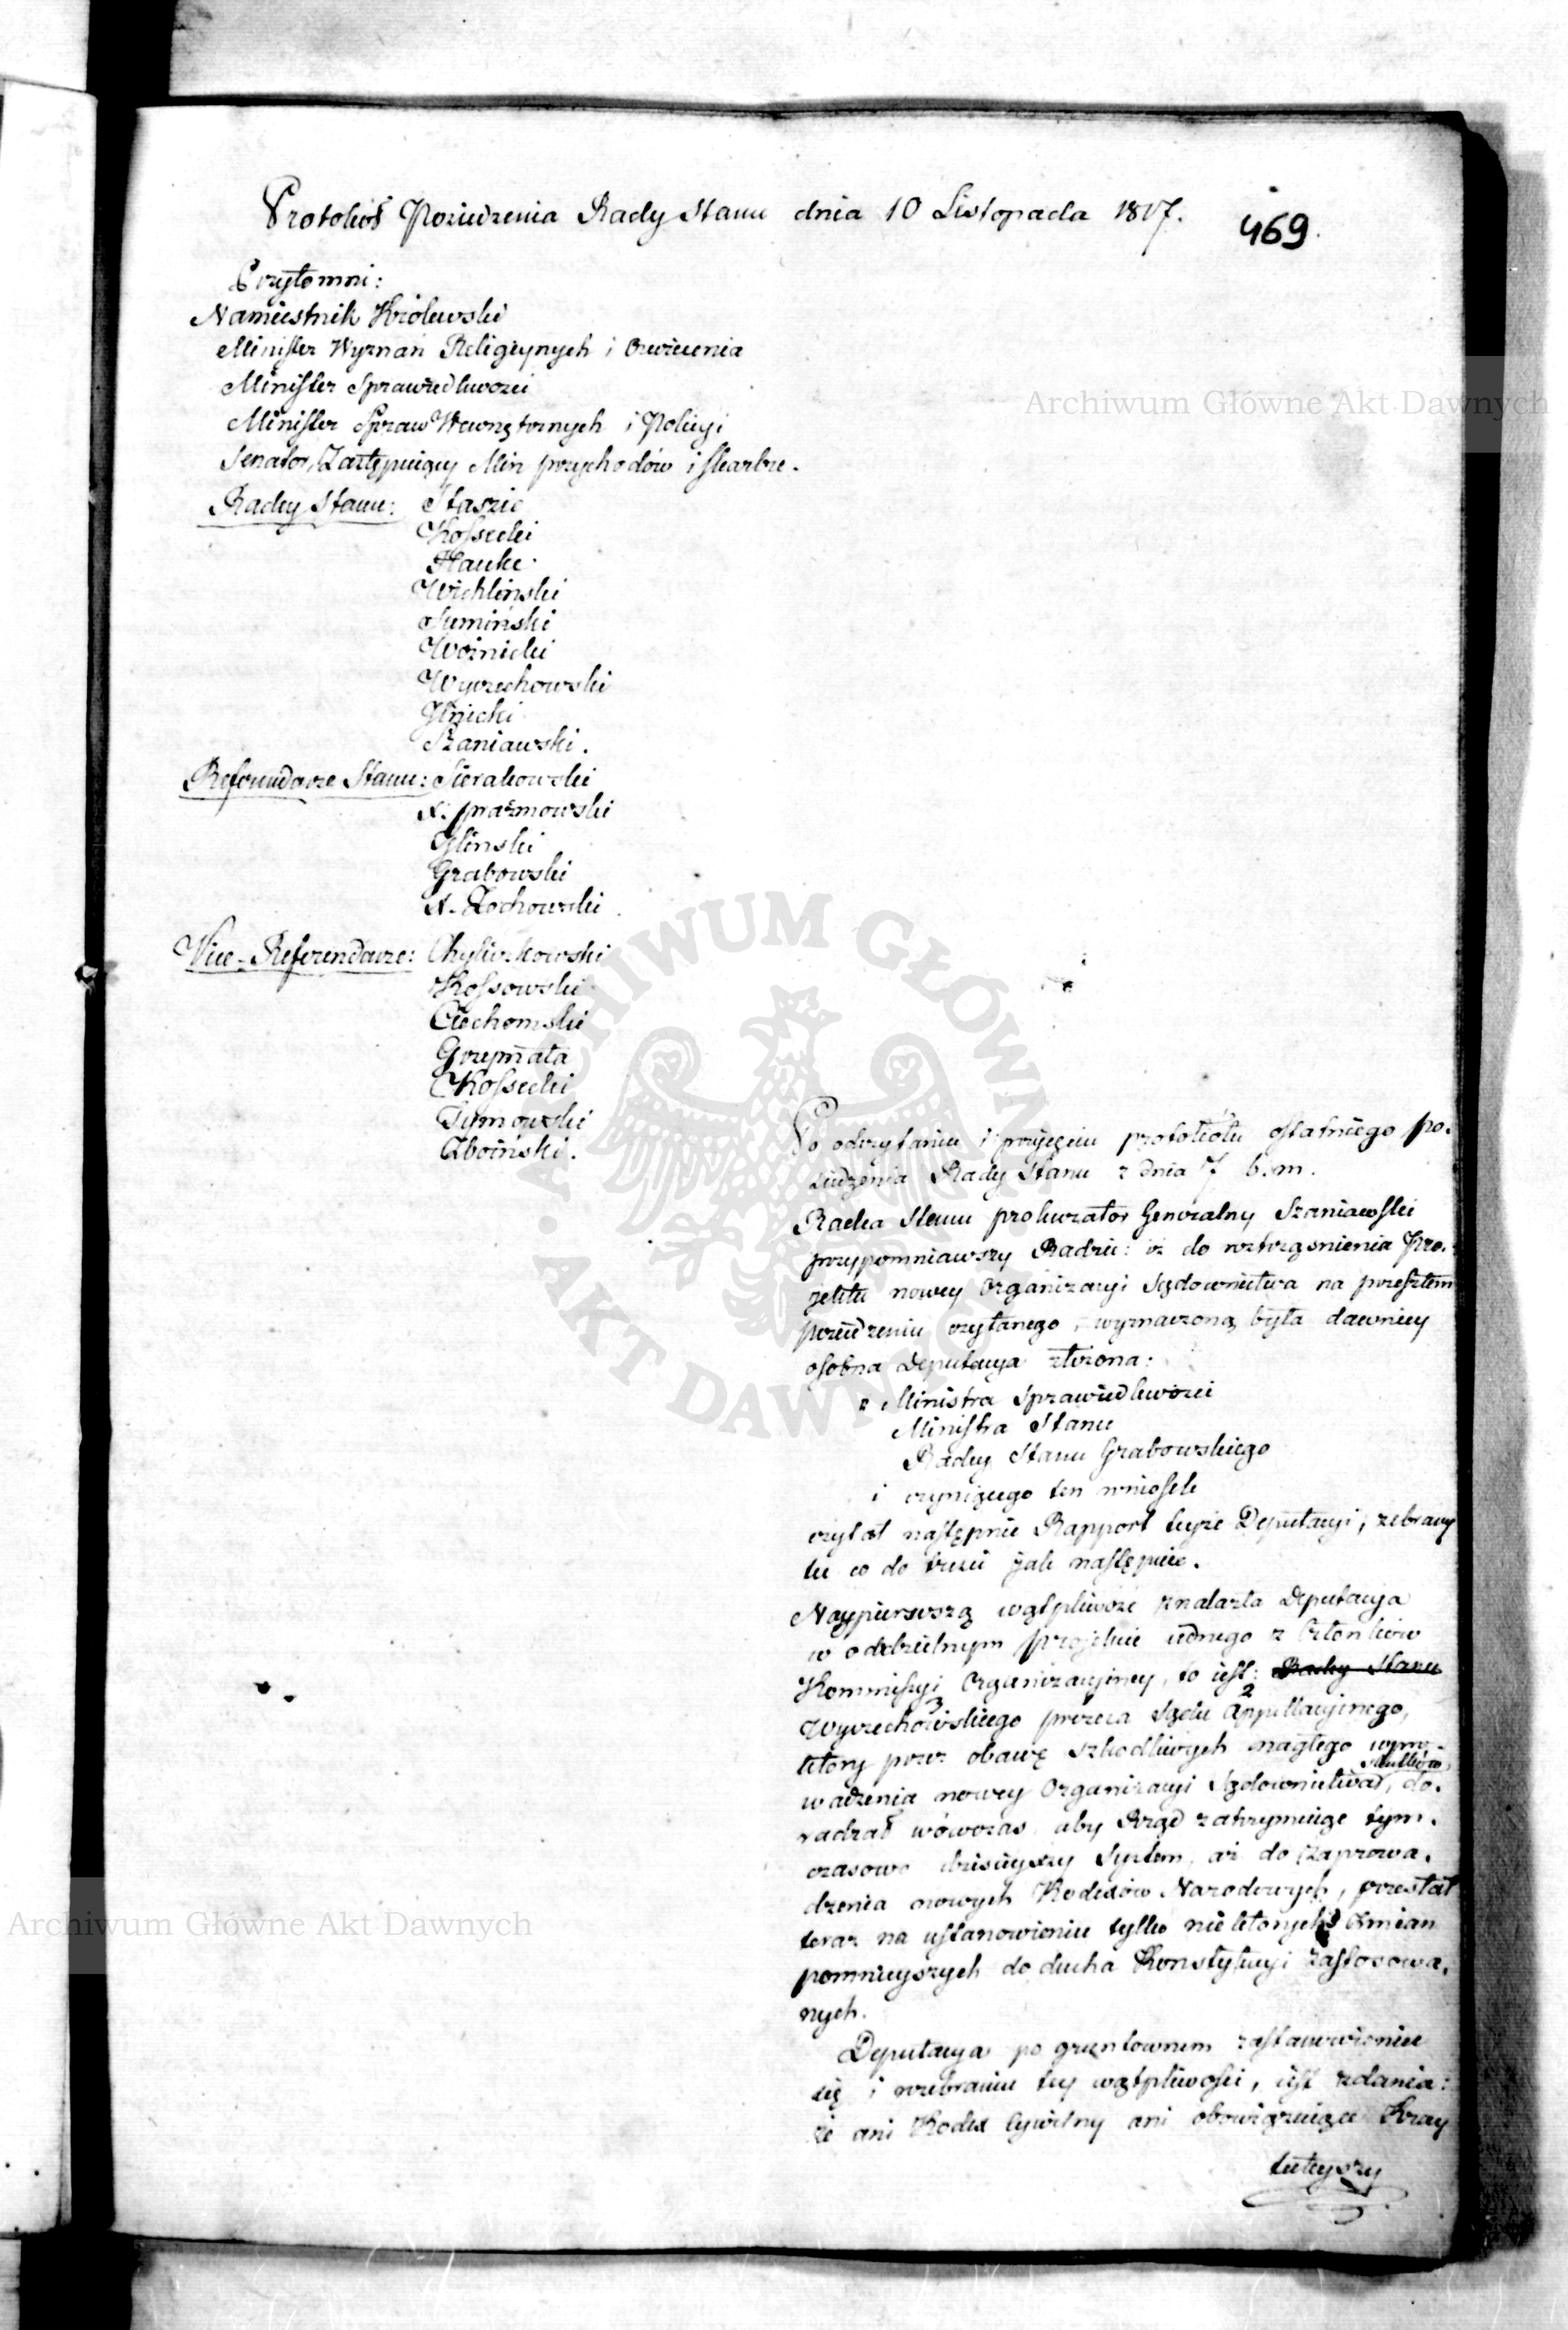 Protokół Posiedzenia Rady Stanu dnia 10 Listopada 1817.
469.
Przytomni:
Namiestnik Królewski
Minister Wyznań Religiynych i Oswiecenia
Minister Sprawiedliwosci
Minister Spraw Wewnętrznych i Policyi
Senator, Zastępuiący Min przychodów i skarbu.
Radcy Stanu: Staszic
Kossecki
Hauke
Wichliński
Sumiński
Woźnicki
Wyczechowski
Szaniawski.
Referendarze Stanu: Sierakowski
X. prażmowski
Gliński
Grabowski
X. Zochowski
Vice-Referendarze: Chyliczkowski
Kossowski
Ciechomski
Grzymała
Kossecki
Tymowski
Zboiński.
Po odczytaniu i przyięciu protokołu ostatniego po-
siedzenia Rady Stanu z dnia 7 b.m.
Radca Stanu prokurator Generalny Szaniawski
przypomniawszy Radzie: iż do roztrząsnienia Pro-
jektu nowey Organizacyi Sądownictwa na przeszłem
posiedzeniu czytanego, wyznaczoną była dawniey
osobna Deputacya złożona:
z Ministra Sprawiedliwości
Ministra Stanu
Radcy Stanu Grabowskiego
i czyniącego ten wniosek
czytał następnie Rapport teyże Deputacyi, zebrany
tu co do treści jak następuie.
Naypierwszą wątpliwość znalazła Deputacya
w oddzielnym projekcie iednego z Członków
Kommissyi Organizacyiney, to iest: Radcy Stanu
3 2
Wyczechowskiego prezesa Sądu Appellacyinego,
który przez obawę szkodliwych nagłego wpro-
skutków
wadzenia nowey Organizacyi Sądownictwa, do-
radzał wówczas aby Rząd zatrzymuiąc tym-
czasowo dzisieyszy System, aż do zaprowa-
dzenia nowych Kodexów Narodowych, przestał
teraz na ustanowieniu tylko niektorych zmian
pomnieyszych do ducha Konstytucyi zastosowa-
nych.
Deputacya po gruntownem zastanowieniu
się i rozebraniu tey wątpliwości, iest zdania:
że ani Kodex Cywilny ani obowiązuiące Kray
tuteyszy
Archiwum Główne Akt Dawnych
Archiwum Główne Akt Dawnych
ARCHIWUM GŁÓWNE · AKT DAWNYCH ·